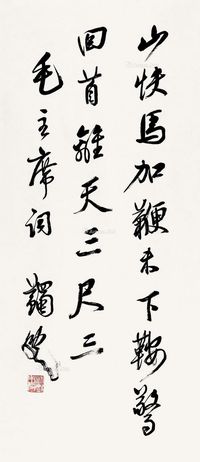 山快馬加鞭未下鞍驚
回首離天三尺三
毛主席詞